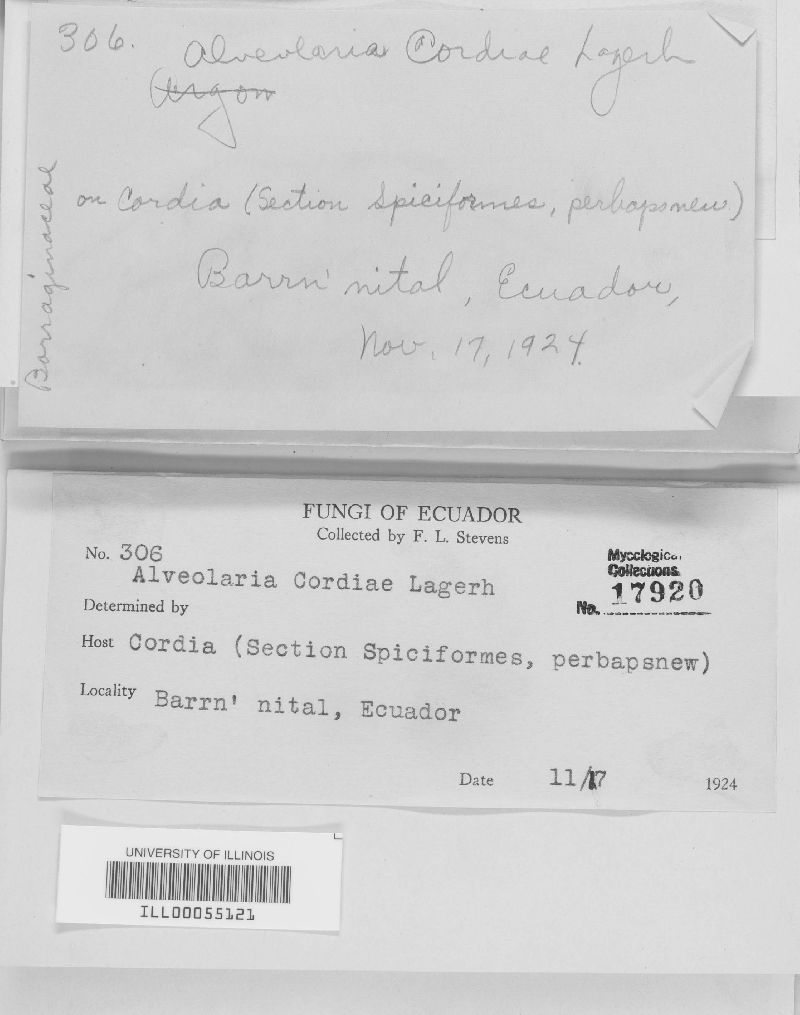 306. Alveolaria Cordiae Lagerh
Argon
on Cordia (Section Spiciformes, perbapsnew)
Barrn' nital, Ecuador,
Nov. 17, 1924.
Borraginaceae
FUNGI OF ECUADOR
Collected by F. L. Stevens
No. 306
Alveolaria Cordiae Lagerh
Mycological
Collections
No. 17920
Determined by
Host Cordia (Section Spiciformes, perbapsnew)
Locality Barrn' nital, Ecuador
Date 11/17 1924
UNIVERSITY OF ILLINOIS
ILL00055121